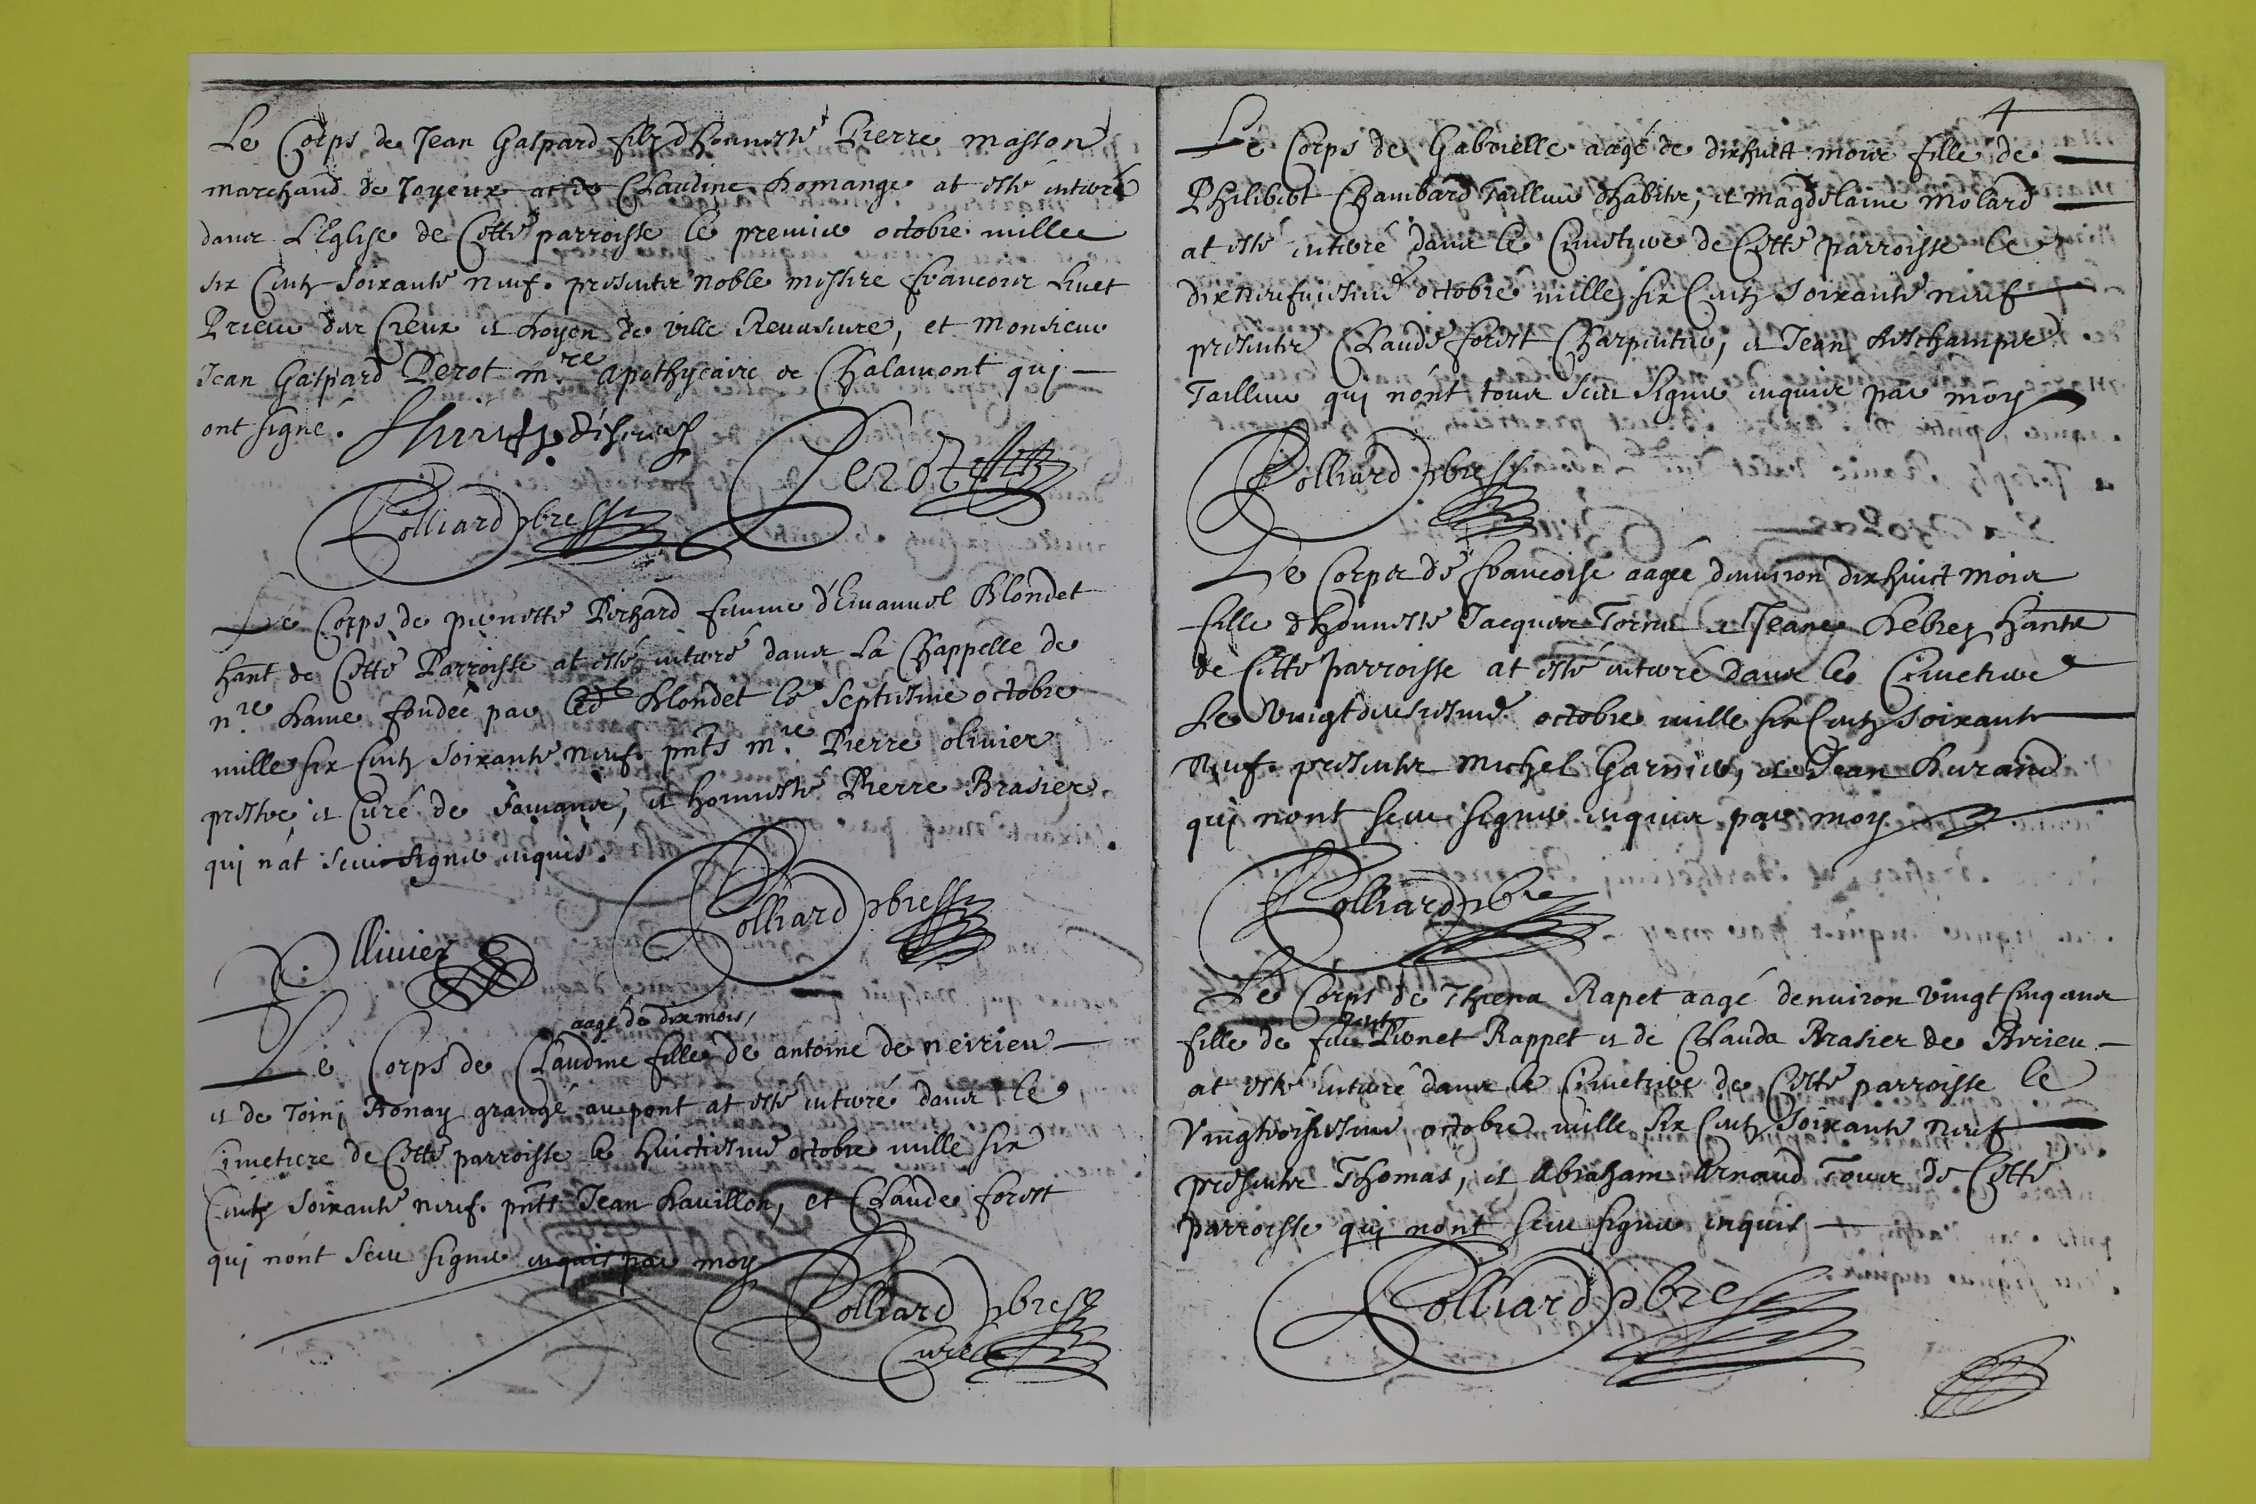 Le Corps de Jean Gaspard filz d'honneste Pierre Masson
marchand de Joyeux et de Claudine Domange at esté enterré
dans L'Eglise de Cette parroisse le premier octobre mille
six Centz soixante neuf. presentz noble messire francois huet
Prieur des Creux et doyen de ville Reuersure, et Monsieur
Jean Gaspard Perot m.re apothycaire de Chalamont qui
ont signé.
Perot
Rolliard pbre
Le Corps de pernette Pichard femme d'Emanuel Blondet
hant de Cette Parroisse at esté enterré dans La Chappelle de
n.re dame fondée par led Blondet le septiesme octobre
mille six Centz soixante neuf. pnts m.re Pierre olivier
prestre et Curé de, et honneste Pierre Brasier
qui n'at sceu signer enquis.
Rolliard pbre
P. Ollivier
aagé de dix mois,
Le Corps de Claudine fille de antoine de neirieu
et de Toini Ronay grangé au pont at esté enterré dans le
Cimetiere de Cette parroisse le huictiesme octobre mille six
Centz soixante neuf. pnts Jean Dauillon, et Claude forest
qui nont sceu signer enquis par moy
Rolliard pbre
Curé
4
Le Corps de Gabrielle aagé de dixhuict mois fille de
Philibert Chambard Tailleur d'habitz, et Magdelaine Molard
at esté enterré dans le Cimetiere de Cette parroisse le
dixneufuiesme octobre mille six Centz soixante neuf
presentz Claude forest Charpentier, et Jean Deschamps
Tailleur qui n'ont tous sceu signer enquis par moy
Rolliard pbre
Le Corps de francoise aagée d'enuiron dixhuict mois
fille d'honneste Jacques et Jeane Debrez hants
de Cette parroisse at esté enterré dans le Cimetiere
Le Vingtdeusiesme octobre mille six Centz soixante
neuf. presentz Michel Garnier, et Jean Durand
qui nont sceu signer enquis par moy
Rolliard pbre
Le Corps de Thiena Rapet aagé denuiron Vingt Cinq ans
fille de feu Pernet Rappet et de Clauda Brasier de Birieu
at esté enterré dans le Cimetiere de Cette parroisse le
Vingtroisiesme octobre mille six Centz soixante neuf
presentz Thomas, et Abraham Arnaud Tous de Cette
parroisse qui nont sceu signer enquis
Rolliard pbre